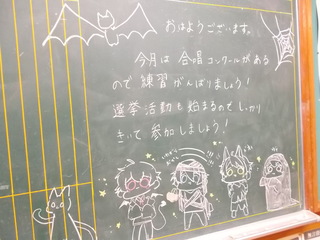 おはようございます。
今月は合唱コンクールがある
ので練習がんばりましょう！
選挙活動も始まるのでしっかり
きいて参加しましょう！